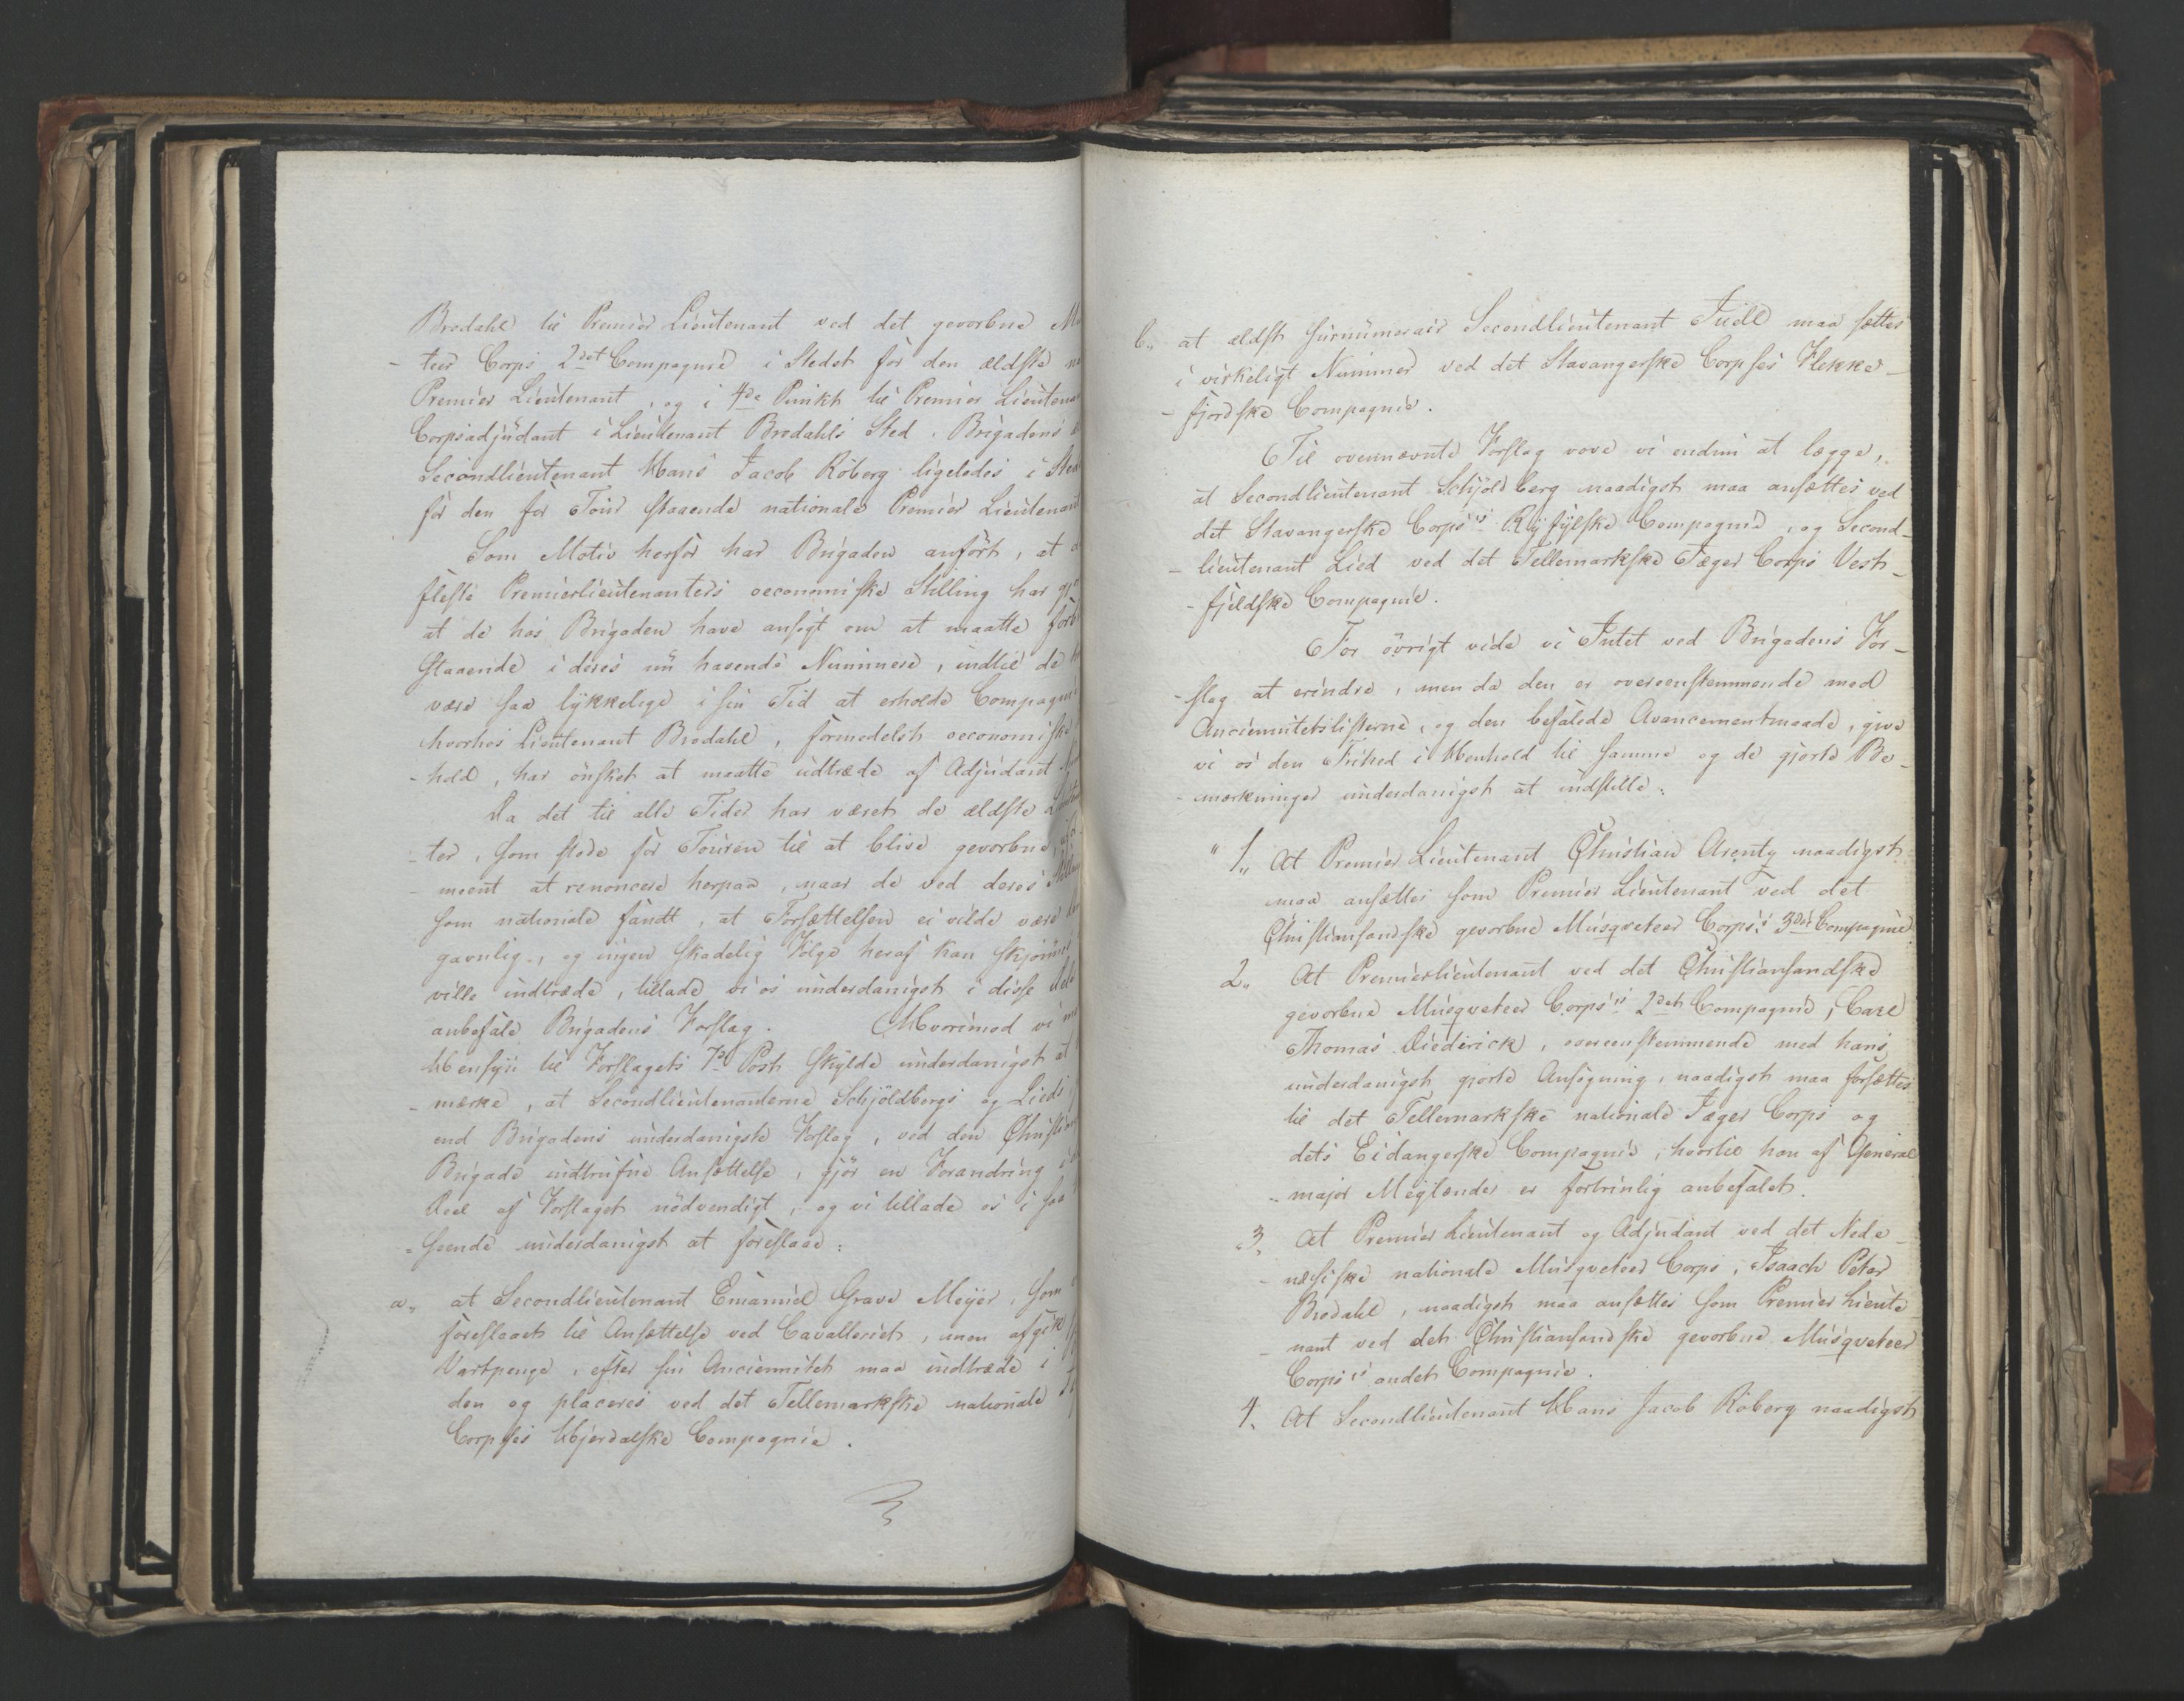 Brodahl til Premier Lieutenant ved det gevorbne
-teer Corps 2det Compagnie i Stedet for den ældste
Premier Lieutenant, og i 4de Punkt til Premier
Corpsadjudant i Lieutenant Brodahls Sted, Brigadens
Secondlieutenant Hans Jacob Röberg ligeledes i
for den for Tour staaende nationale Premier Lieutenant
Som Motiv herfor har Brigaden anfört, at
fleste Premierlieutenanters oeconomiske Stilling har
at de hos Brigaden have ansögt om at maatte
staaende i deres nu havende Nummere, indtil de
være saa lykkelige i sin Tid at erholde
hvorhos Lieutenant Brodahl, formedelst oeconomiske
-hold, har önsket at maatte udtræde af Adjudant
Da det til alle Tider har været de ældste
-ter, som stode for Touren til at blive gevorbne,
-meent at renoncere herpaa, naar de ved deres
som nationale fandt, at Forsættelsen ei vilde være
gavnlig, og ingen skadelig Fölge heraf kan
ville indtræde, tillade vi os underdanigst i disse
anbefale Brigadens Forslag. Hvorimod vi
Hensyn til Forslagets 7de Post skylde underdanigst at
-mærke, at Secondlieutenanterne Schjöldbergs og Lieds
end Brigadens underdanigste Forslag, ved den
Brigade indtrufne Ansættelse, gjör en Forandring i
Deel af Forslaget nödvendigt, og vi tillade os i saa
-seende underdanigst at foreslaae:
a,, at Secondlieutenant Emanuel Grave Meyer, som
foreslaaet til Ansættelse ved Cavalleriet, men afgik
Vartpenge, efter sin Anciennitet maa indtræde i
den og placeres ved det Tellemarkske nationale
Corpses Hjerdalske Compagnie.
b,, at ældst surnumerair Secondlieutenant Juell maa sættes
i virkeligt Nummer ved det Stavangerske Corpses Flekke-
-fjordske Compagnie.
Til ovennævnte Forslag vove vi endnu at lægge,
at Secondlieutenant Schjöldberg naadigst maa ansættes ved
det Stavangerske Corps's Ryfylske Compagnie, og Second-
-lieutenant Lied ved det Tellemarkske Jæger Corps Vest-
-fjeldske Compagnie.
For övrigt vide vi Intet ved Brigadens For-
-slag at erindre, men da den er overeenstemmende med
Anciennitetslisterne, og den befalede Avancementmaade, give
vi os den Frihed i Henhold til samme og de gjorte Be-
-mærkninger underdanigst at indstille:
" 1,, At Premier Lieutenant Christian Arentz naadigst
maa ansættes som Premier Lieutenant ved det
Christiansandske gevorbne Musqveteer Corps's 3die Compagnie
2,, At Premierlieutenant ved det Christiansandske
gevorbne Musqveteer Corps's 2det Compagnie, Carl
Thomas Diederick, overeenstemmende med hans
underdanigst gjorte Ansögning, naadigst maa forsættes
til det Tellemarkske nationale Jæger Corps og
dets Eidangerske Compagnie, hvortil han af General
-major Meylænder er fortrinlig anbefalet.
3, At Premier Lieutenant og Adjudant ved det Nede-
-næsiske nationale Musqveteer Corps, Isaach Peter
Brodahl, naadigst maa ansættes som Premier Lieute-
-nant ved det Christiansandske gevorbne Musqveteer
Corps's andet Compagnie.
4, At Secondlieutenant Hans Jacob Röberg naadigst